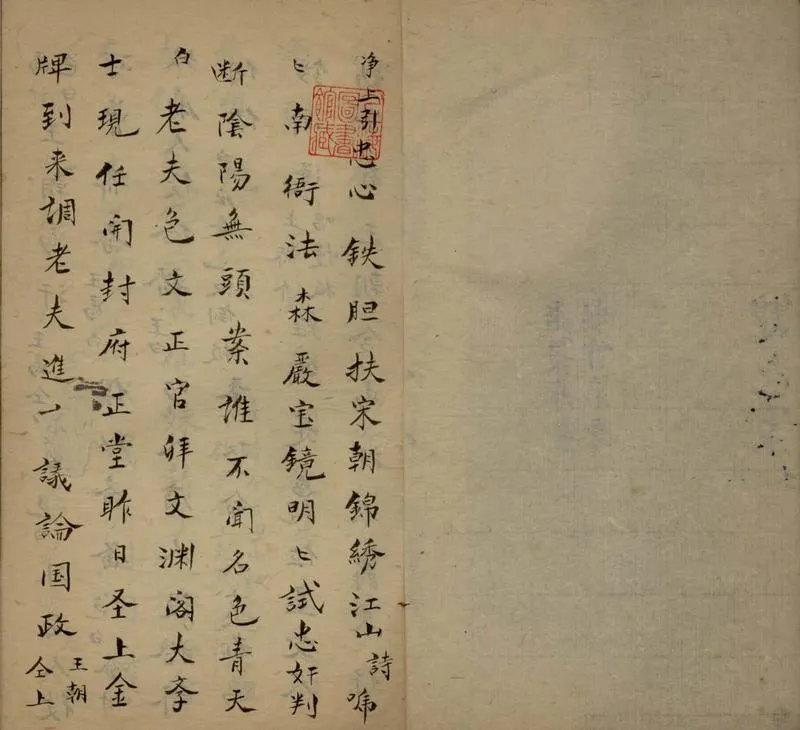 净上引忠心鉄胆扶宋朝錦綉江山詩
〻南衙法森嚴宝鏡明〻試忠奸判
断陰陽無頭案誰不聞名色青天
白老夫色文正官拜文渊阁大孛
士現任開封府正堂昨日圣上金
牌到来調老夫進議論国政王朝仝上
圖書
館藏